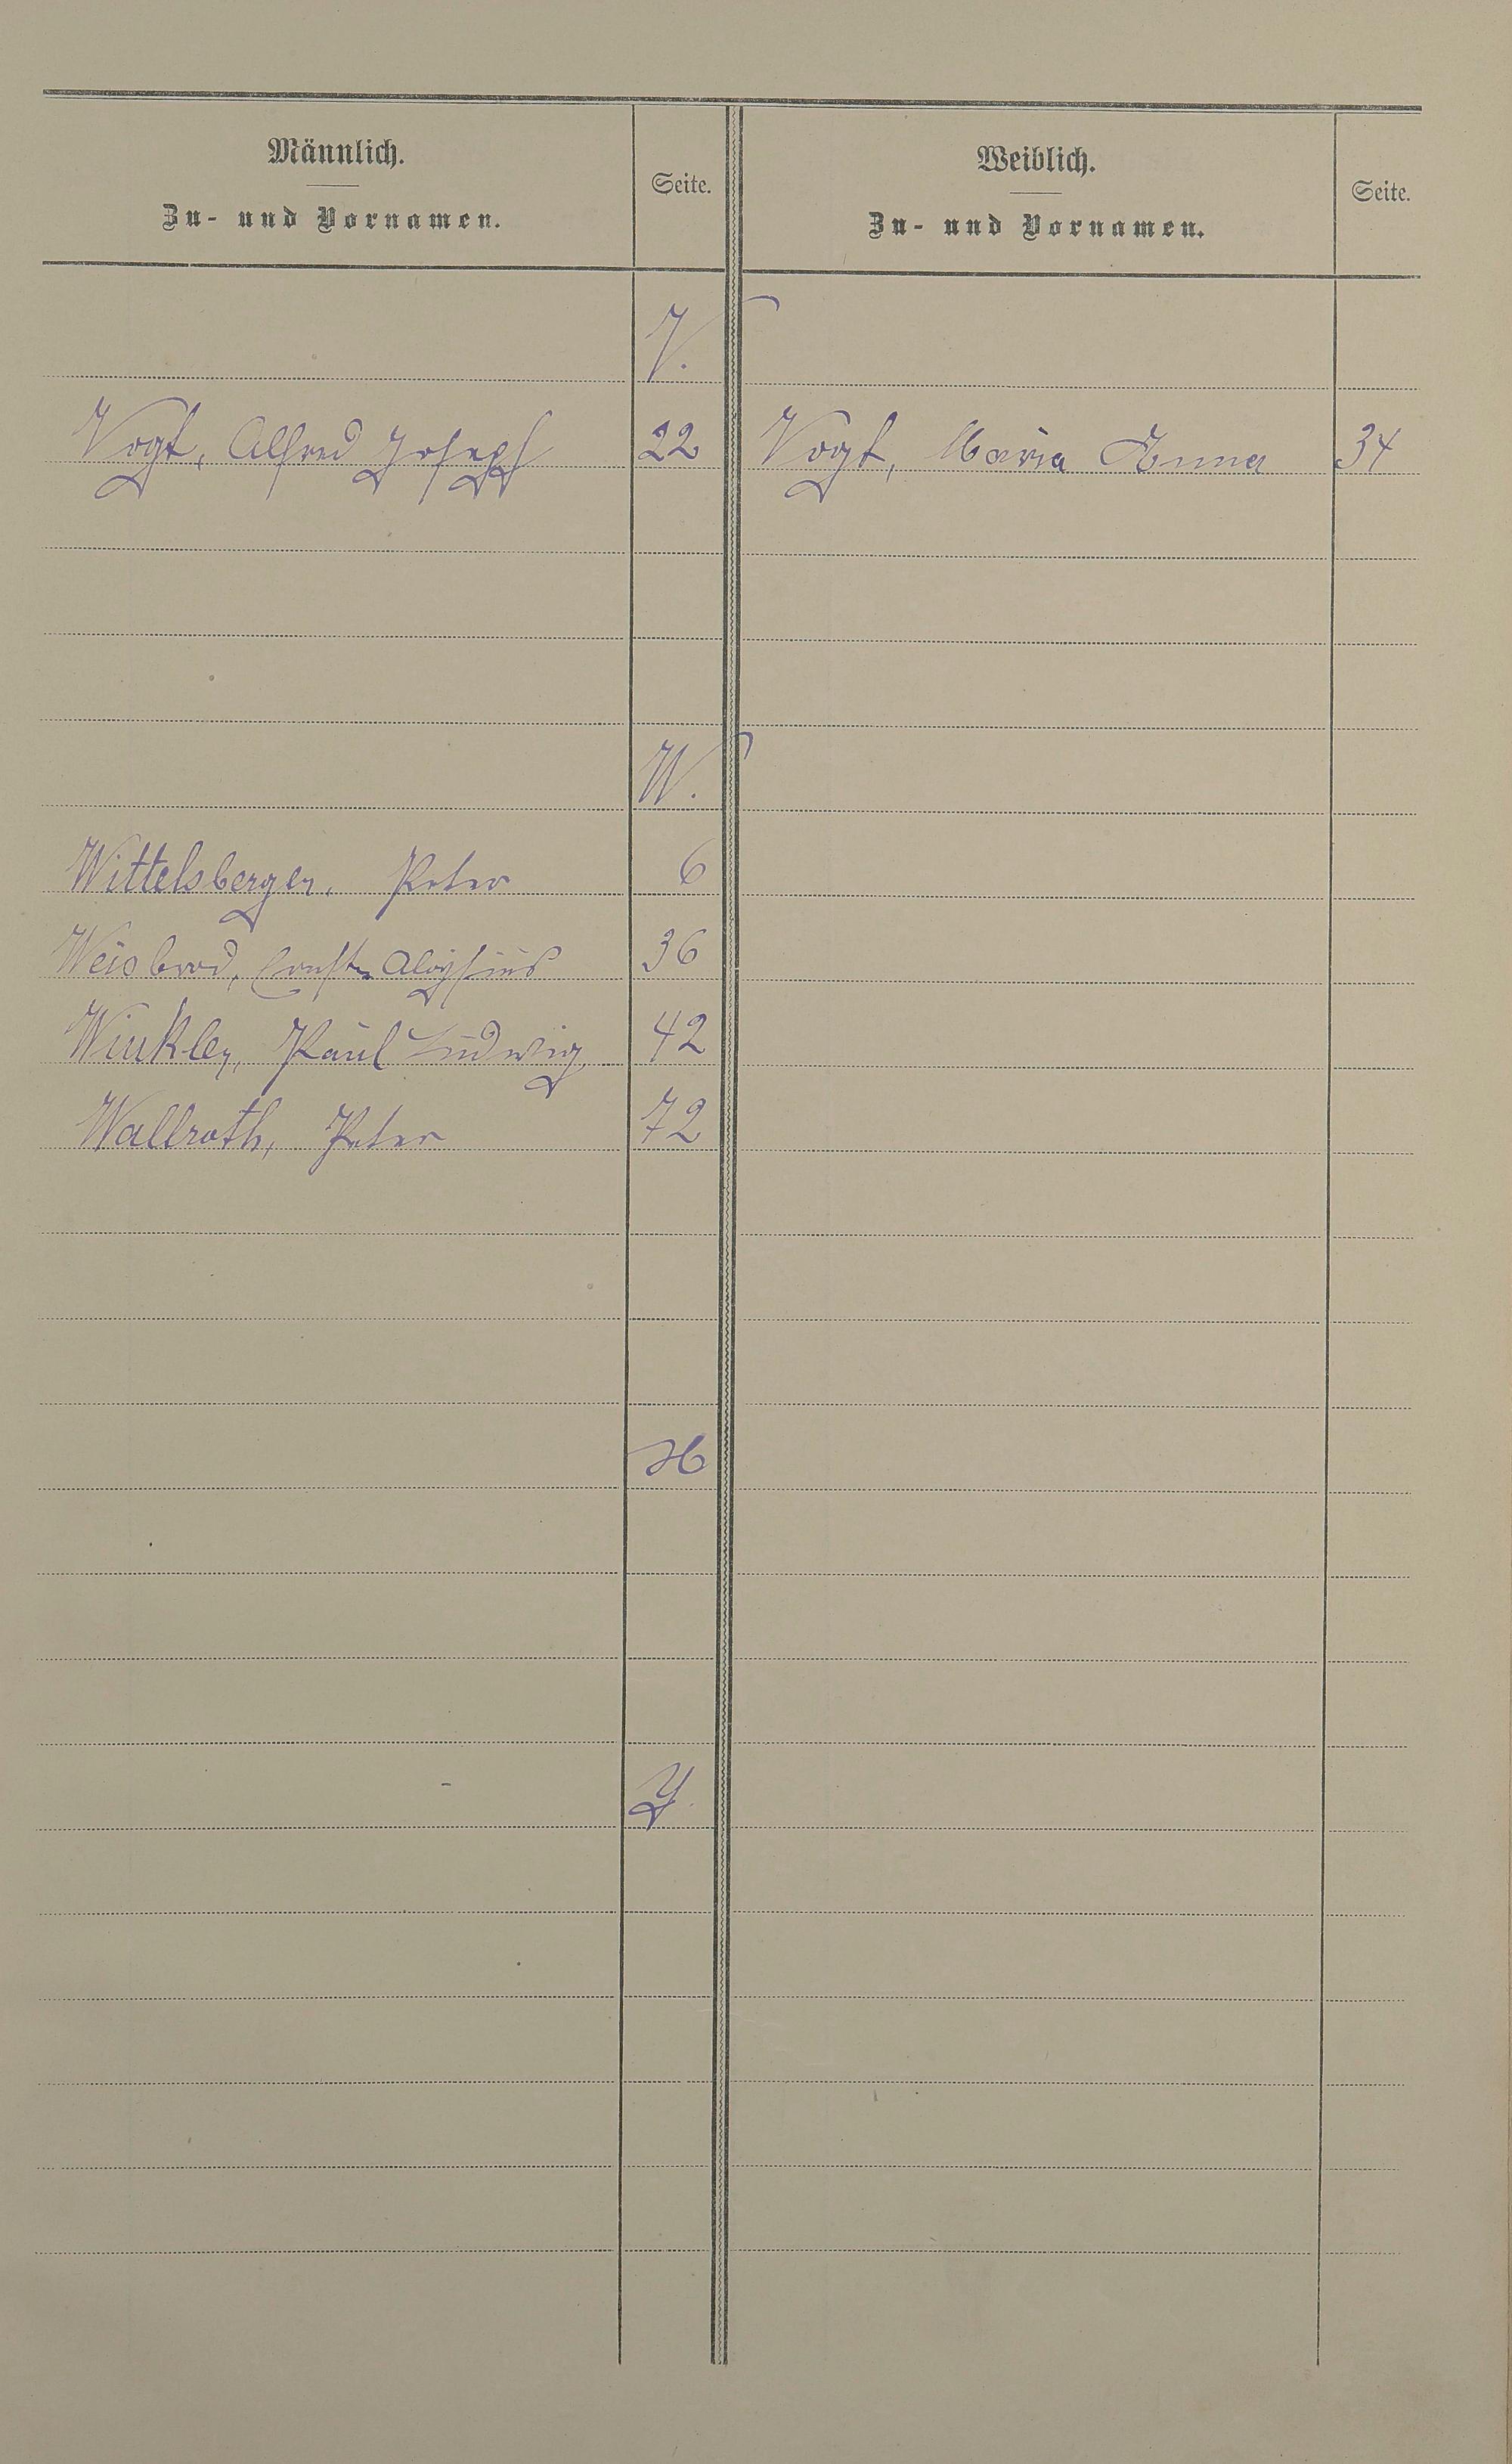 Männlich.
Zu- und Vornamen.
Seite.
Weiblich.
Zu- und Vornamen.
Seite.
V.
Vogt, Alfred Joseph 22 Vogt, Maria Anna 34
W.
Wittelsberger, Peter 6
Weisbrod, Aloysius 36
Winkler, Paul Ludwig 42
Wallroth, Peter 72
X
Y.